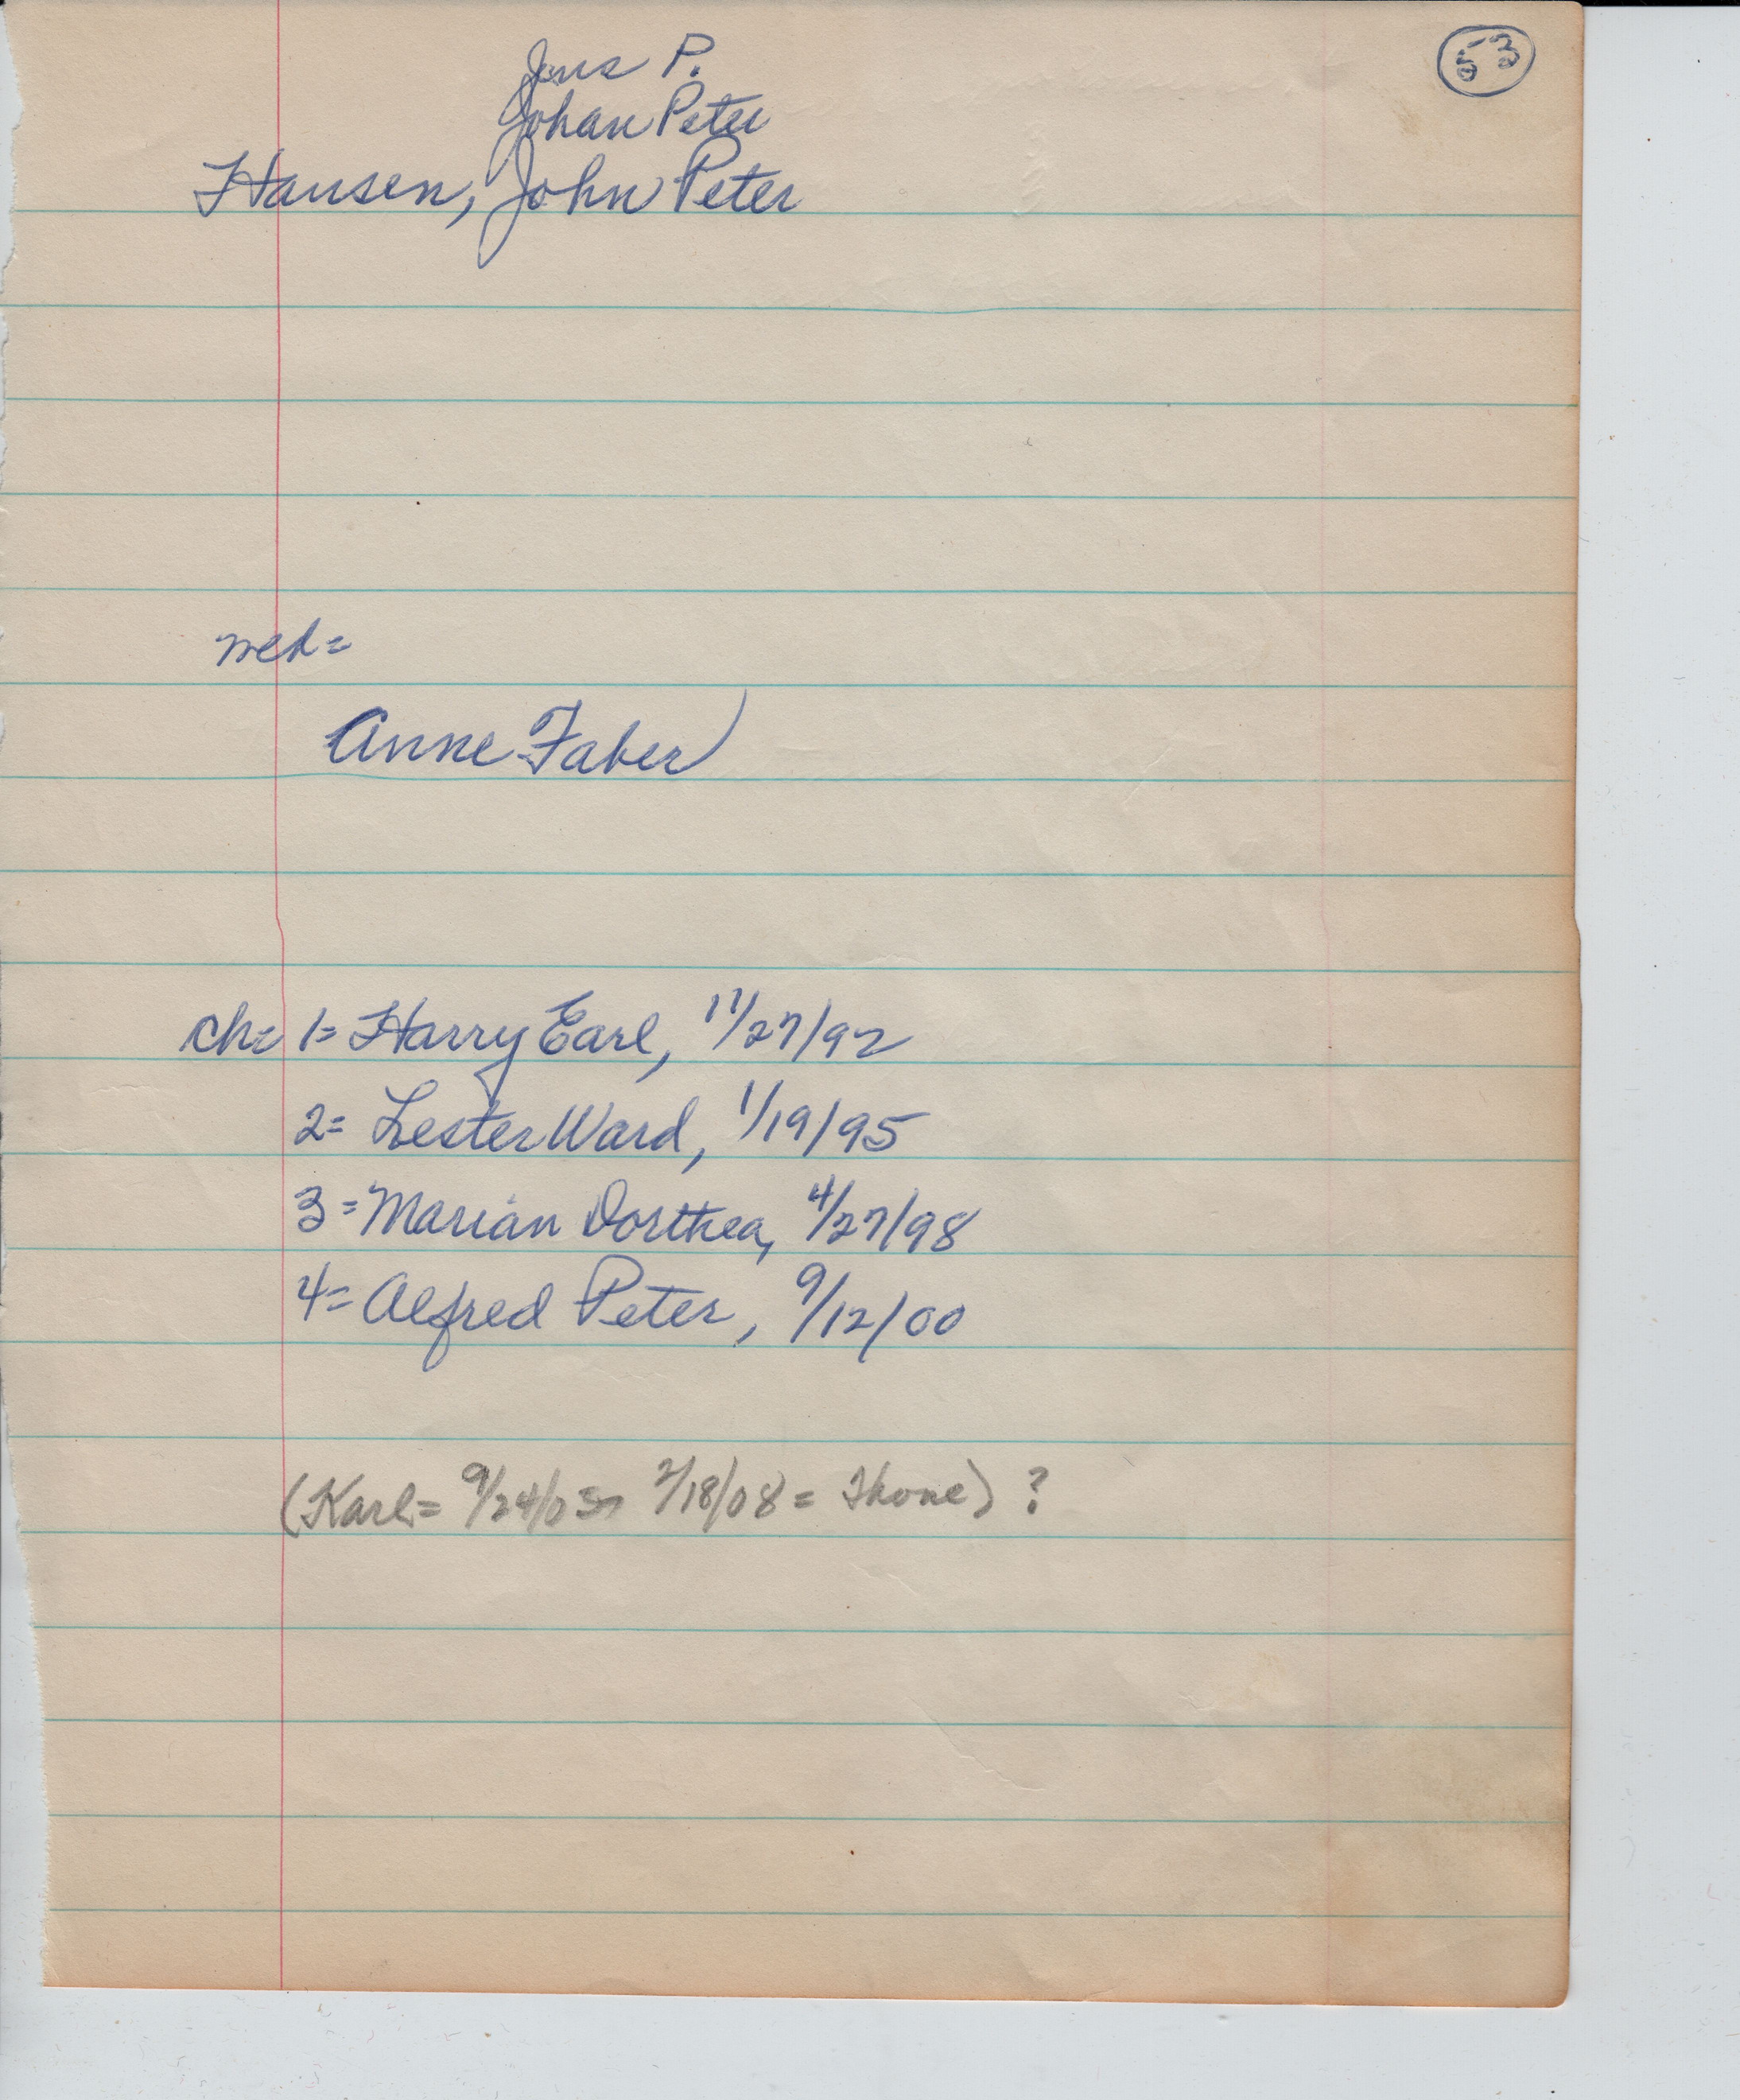 53
Jens P.
Johan Peter
Hansen, John Peter
wed=
Anne Faber
ch= 1= Harry Earl, 11/27/92
2= Lester Ward, 1/19/95
3= Marian Dorthea, 4/27/98
4= Alfred Peter, 9/12/00
(Karl= 9/24/03 2/18/08 = ) ?